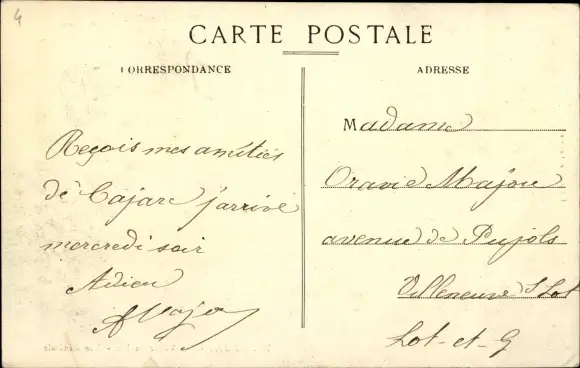 4
CARTE POSTALE
CORRESPONDANCE
ADRESSE
Reçois mes amitiés
de Cajarc j'arrive
mercredi soir
Adieu
Madame
Oravie Majou
avenue de Pujols
Villeneuve s Lot
Lot-et-G